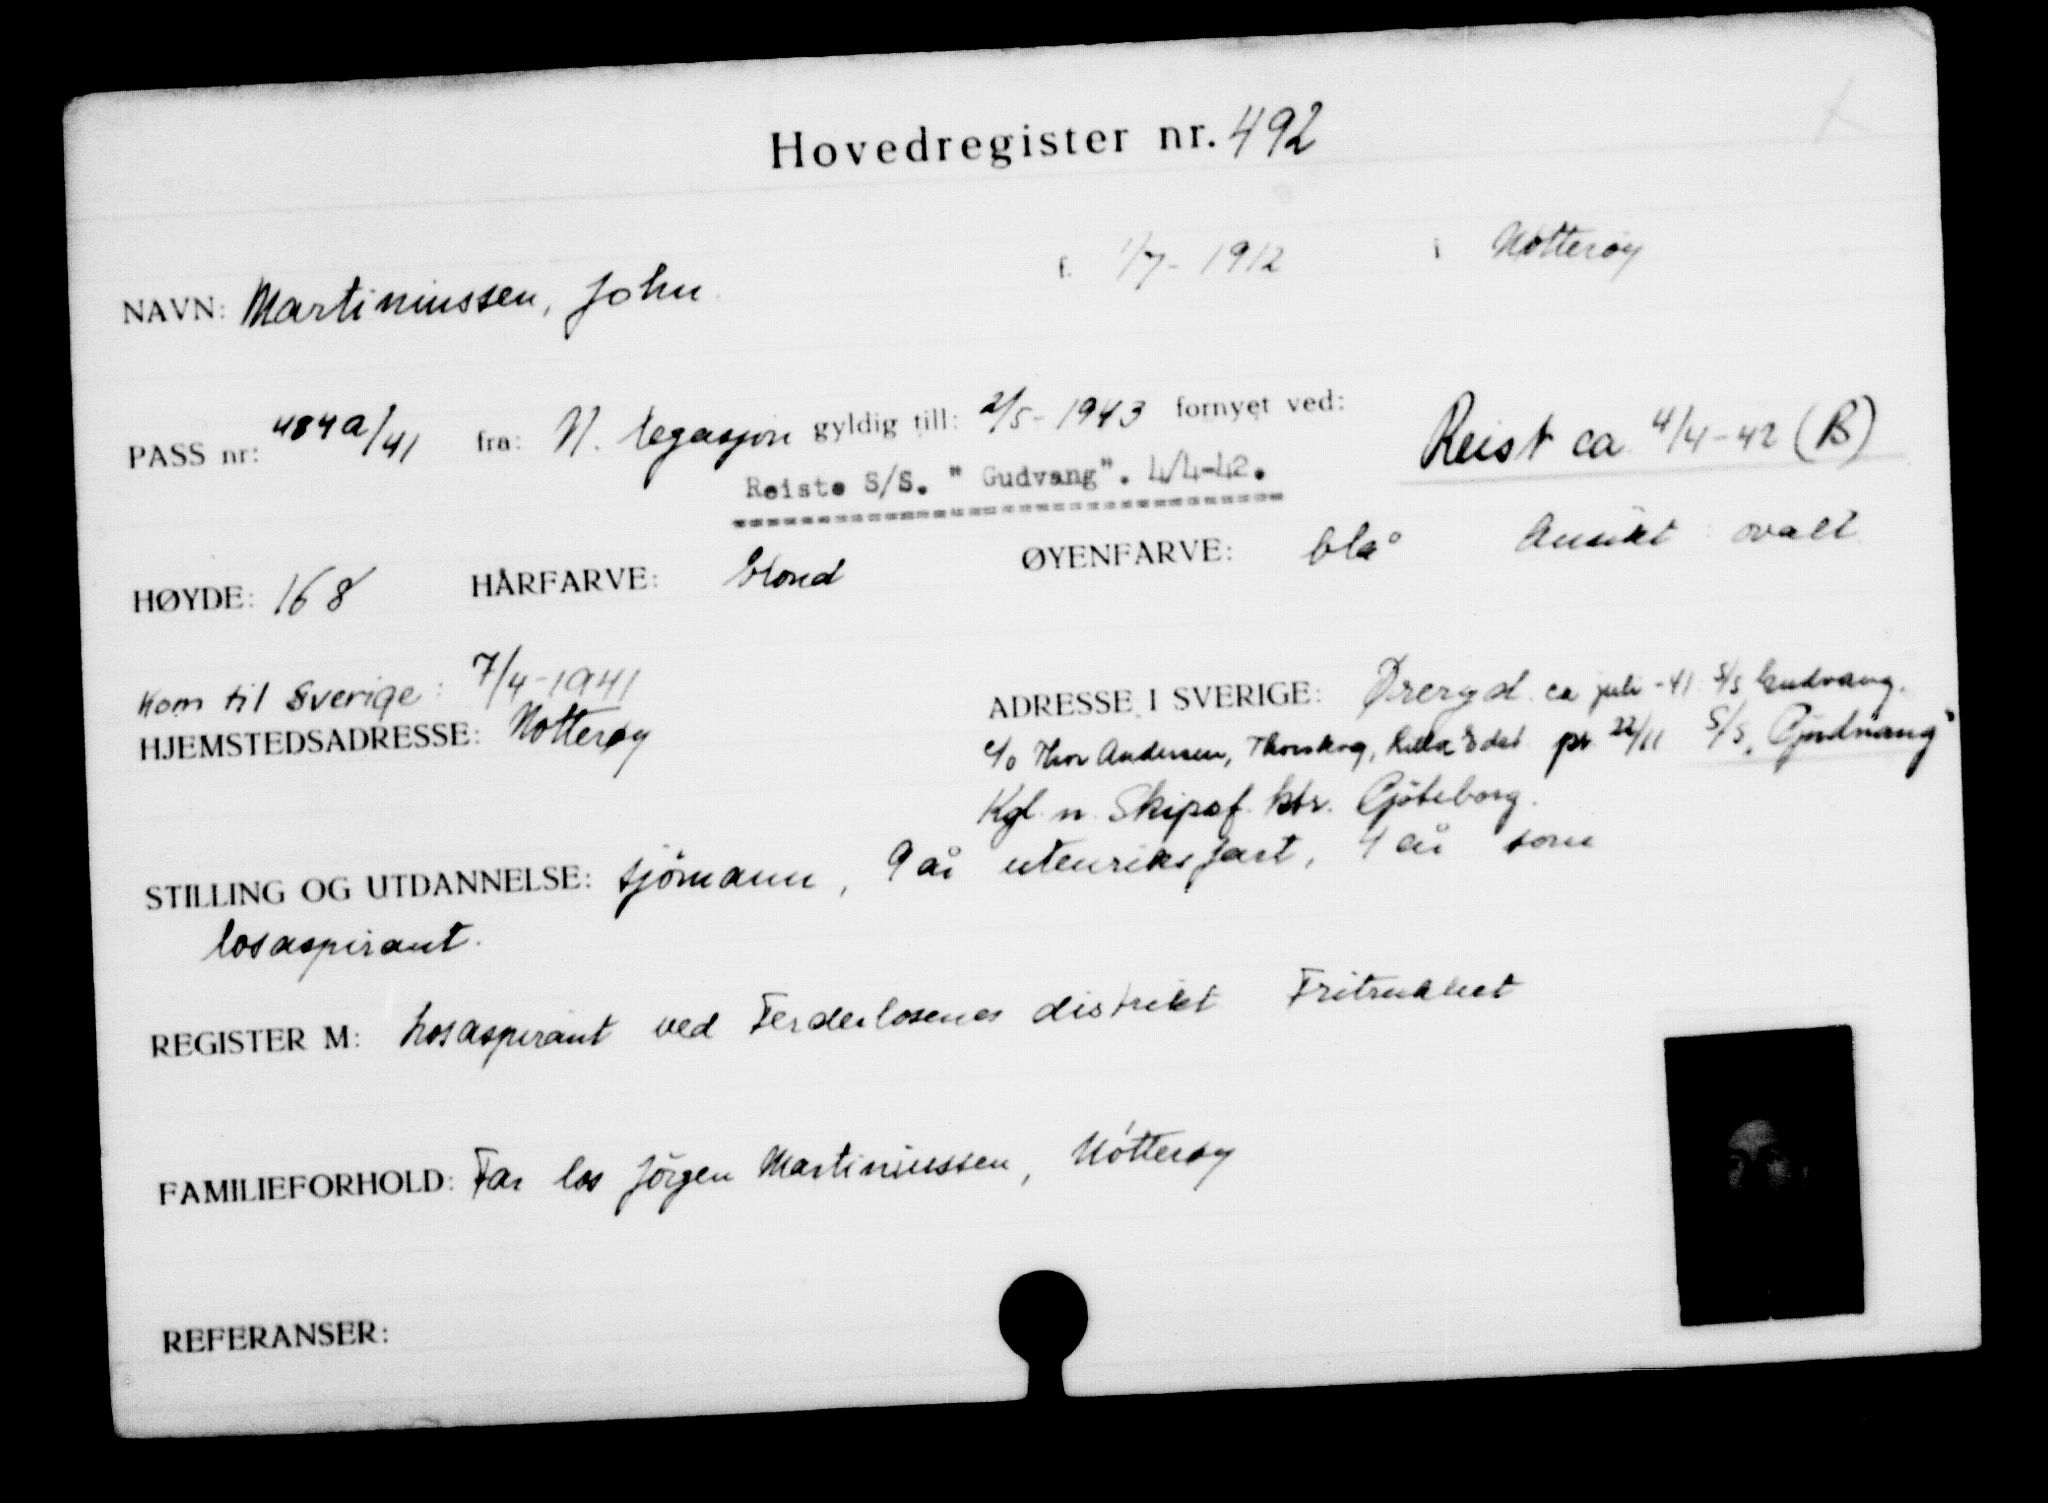 Hovedregister nr. 492
NAVN: Martiniussen, John. f. 1/7-1912 i Nøtterøy
PASS nr: 484a/41 fra: N. legasjon gyldig till: 2/5-1943 fornyet ved:
Reist ca 4/4-42 (B)
Reiste S/S. " Gudvang". 4/4-42.
HØYDE: 168 HÅRFARVE: blond ØYENFARVE: blå Ansikt: ovalt
Kom til Sverige: 7/4-1941
HJEMSTEDSADRESSE: Nøtterøy
ADRESSE I SVERIGE: Øreryd. ca juli -41 S/S Gudvang.
c/o Thor Andersen, Thorskog, Lilla Edet pr 22/11 S/S „Gudvang"
Kgl. n. Skipsf. ktr. Gøteborg.
STILLING OG UTDANNELSE: sjömann, 9 år utenriksfart, 4 år som
losaspirant.
REGISTER M: Losaspirant ved Ferderlosenes distrikt Fritrukket
FAMILIEFORHOLD: Far los Jörgen Martiniussen, Nøtterøy
REFERANSER: